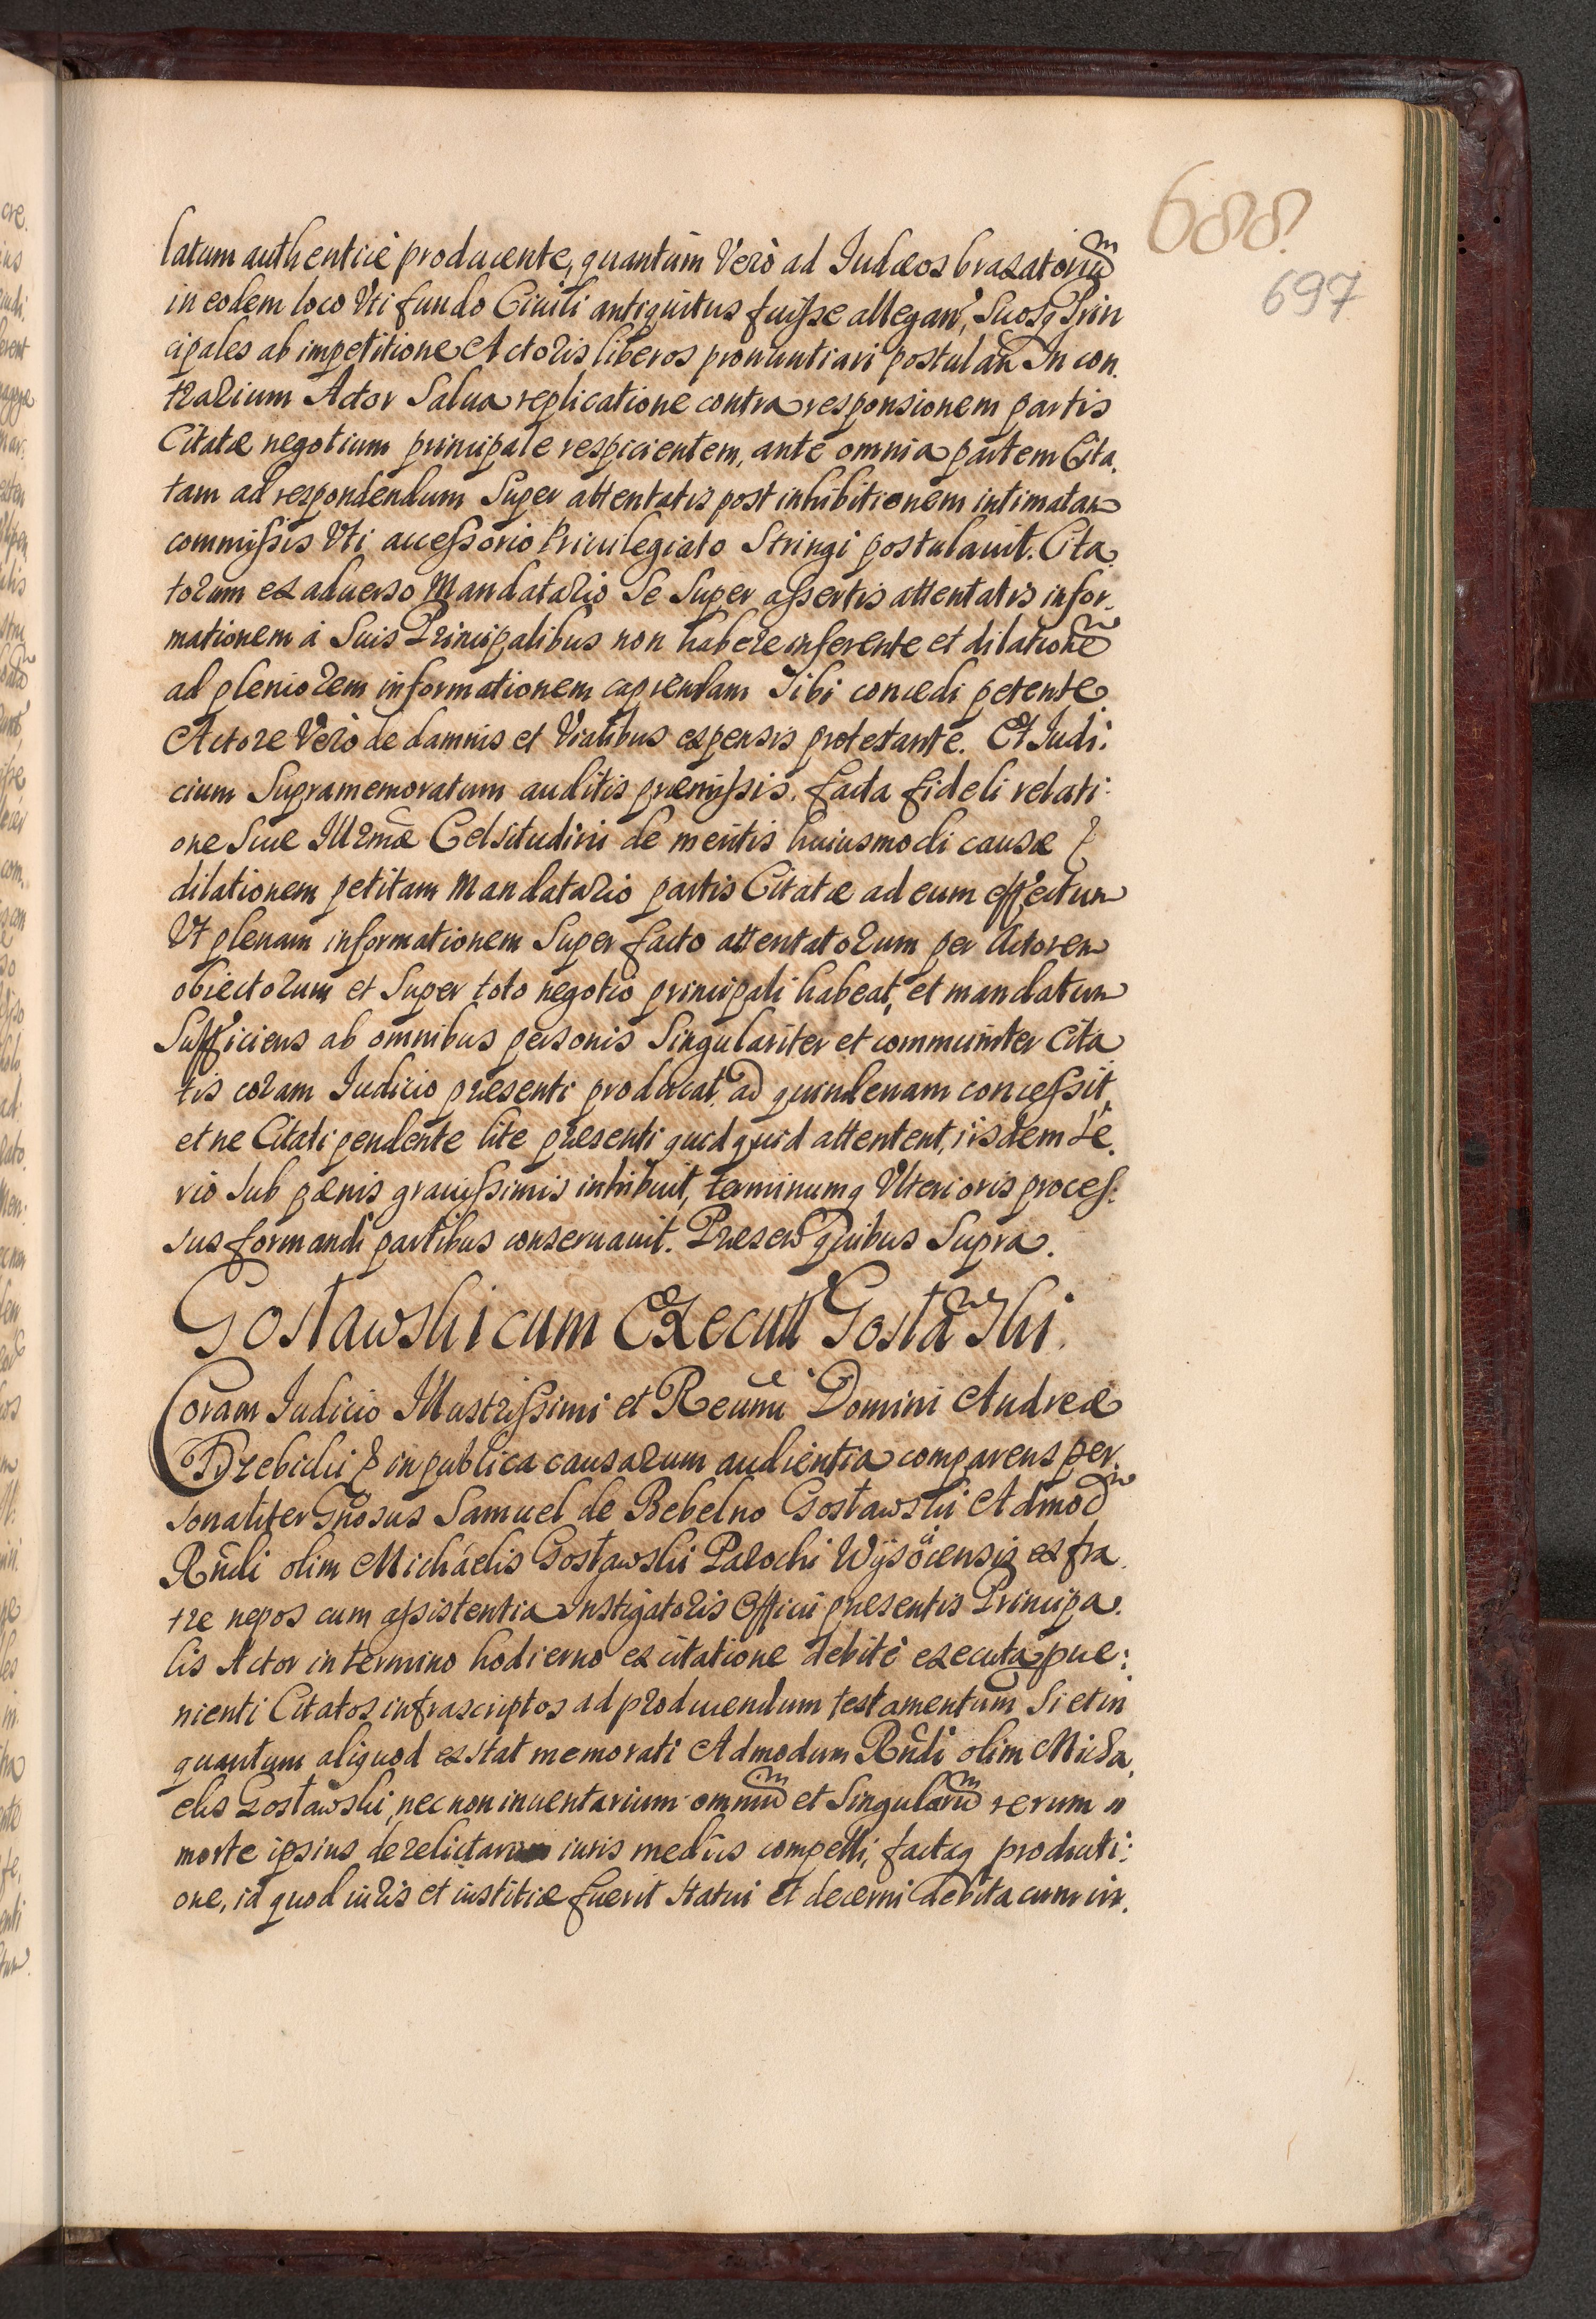 688.
697
latum authenticè producente, quantùm Verò ad Iudæos braxatoriũ
in eodem loco Vti fundo Ciuili antiquitus fuisse allegan, Suosq Prin
cipales ab impetitione Actoris liberos pronuntiari postulañ In con.
trarium Actor Salua replicatione contra responsionem partis
Citatæ negotium principale respicientem, ante omnia partem Cita.
tam ad respondendum Super attentatis post inhibitionem intimatam
commissis Vti accessorio Priuilegiato Stringi postulauit. Cita.
torum ex aduerso Mandatario Se Super assertis attentatis infor.
mationem à Suis Principalibus non habere inferente et dilationẽ
ad pleniorem informationem capiendam Sibi concedi petente.
Actore Verò de damnis et Vialibus expensis protestante. Et Iudi:
cium Supramemoratum auditis præmissis, facta fideli relati:
one Suæ Illrmæ Celsitudini de meritis huiusmodi causæ &
dilationem petitam Mandatario partis Citatæ ad eum effectum
Vt plenam informationem Super facto attentatorum per Actorem
obiectorum et Super toto negotio principali habeat, et mandatum
Sufficiens ab omnibus personis Singulariter et communiter Cita
tis coram Iudicio præsenti producat, ad quindenam concessit,
et ne Citati pendente lite præsenti quidquid attentent, iisdem Se.
rio Sub pænis grauissimis inhibuit, terminumq Vlterioris proces:
sus formandi partibus conseruauit. Præsen Quibus Supra.
Gostawski cum Execut Gostawski.
Coram Iudicio Illustrissimi et Reuñi Domini Andreæ
Trzebicki & in publica causarum audientia comparens per.
sonaliter Gñosus Samuel de Bebelno Gostawski Admod
Rñdi olim Michaelis Gostawski Parochi Wysocensis ex fra.
tre nepos cum assistentia Instigatoris Officii præsentis Principa.
lis Actor in termino hodierno ex citatione debitè executa pue:
nienti Citatos infrascriptos ad producendum testamentum Si et in
quantum aliquod exstat memorati Admodum Rñdi olim Micha,
elis Gostawski, nec non inuentarium omniũ et Singulariũ rerum
morte ipsius derelictarum iuris mediis compelli, factaq producti:
one, id quod iuris et iustitiæ fuerit Statui et decerni debita cum in.